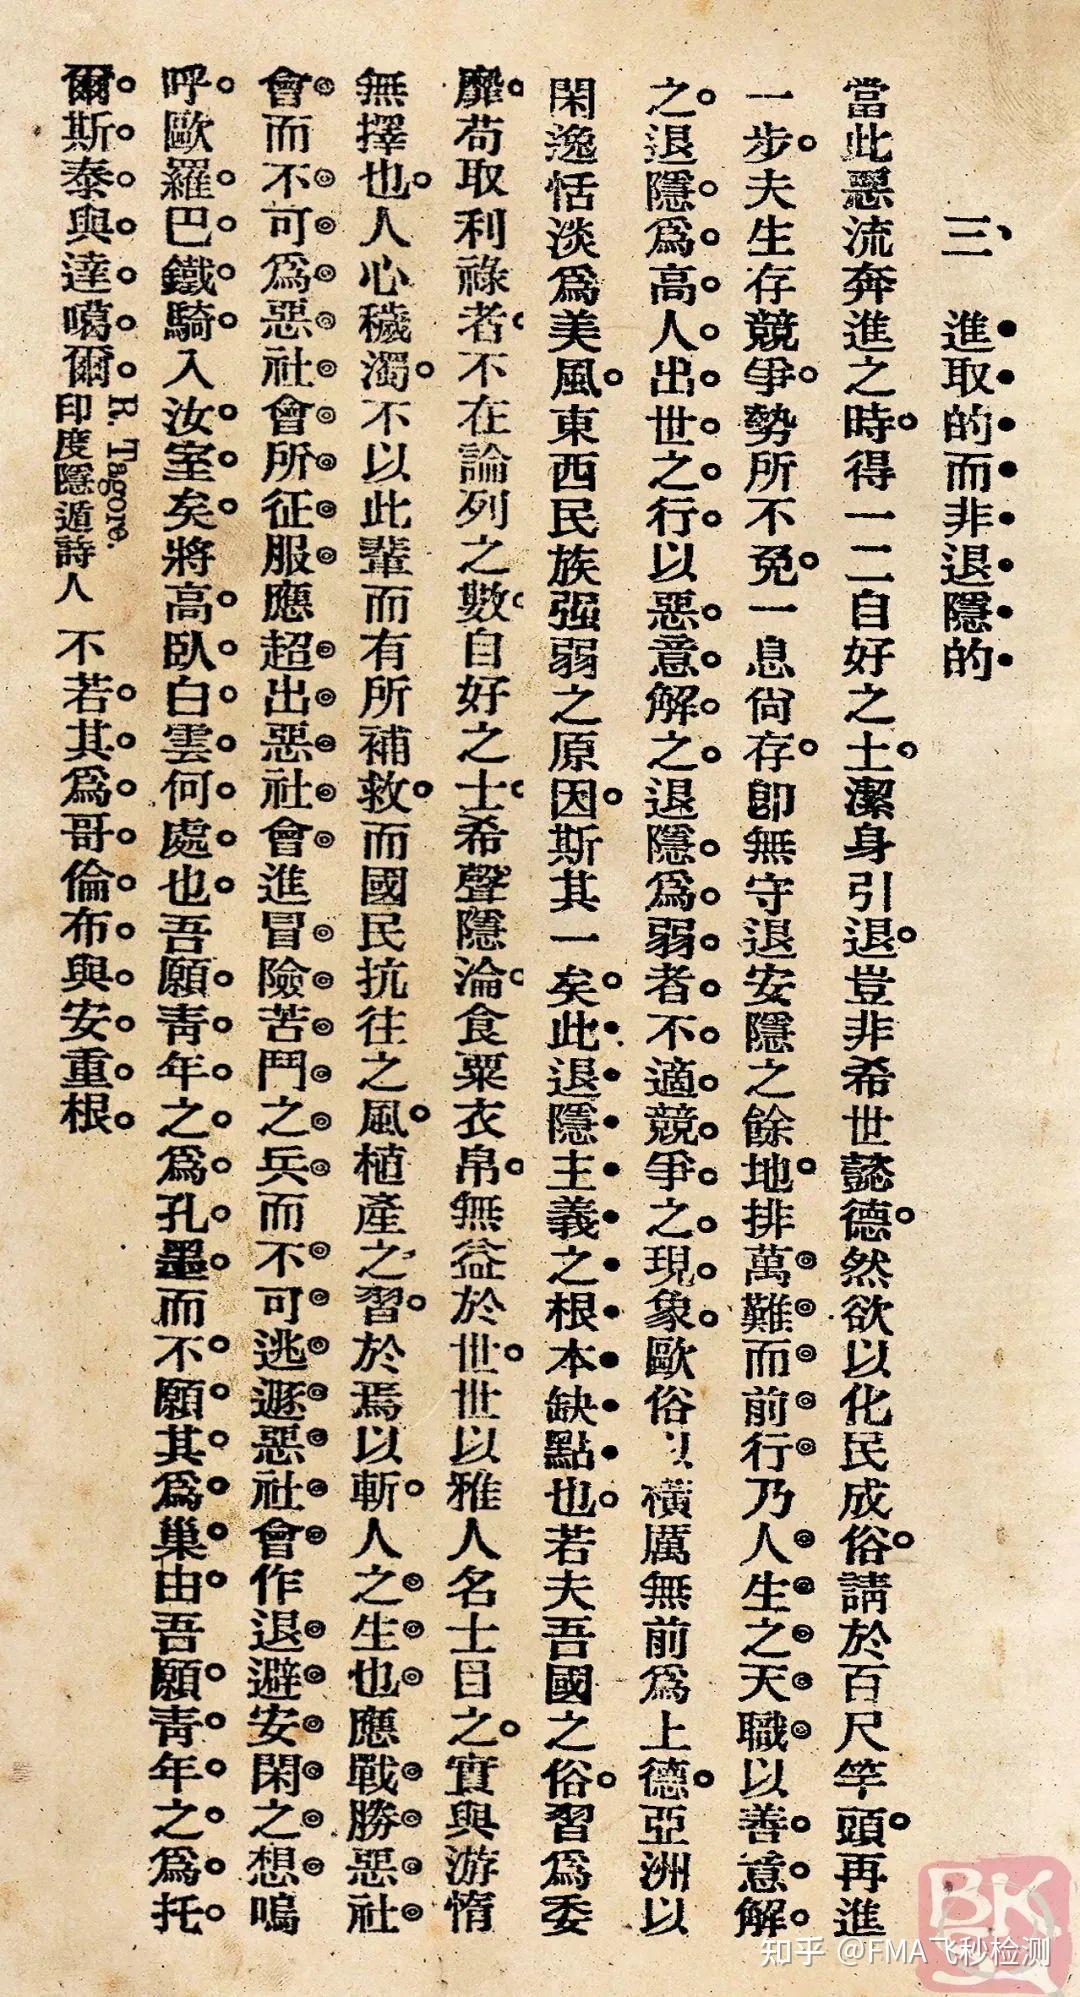 三、進取的而非退隱的
當此惡流奔進之時。得一二自好之士。潔身引退。豈非希世懿德。然欲以化民成俗。請於百尺竿頭。再進
一步。夫生存競爭。勢所不免。一息尙存。卽無守退安隱之餘地。排萬難而前行。乃人生之天職。以善意解
之。退隱爲高人出世之行。以惡意解之。退隱爲弱者不適競爭之現象。歐俗以橫厲無前爲上德。亞洲以
閑逸恬淡爲美風。東西民族强弱之原因。斯其一矣。此退隱主義之根本缺點也。若夫吾國之俗。習爲委
靡。苟取利祿者。不在論列之數。自好之士。希聲隱淪。食粟衣帛。無益於世。世以雅人名士目之。實與游惰
無擇也。人心穢濁。不以此輩而有所補救。而國民抗往之風。植產之習。於焉以斬。人之生也。應戰勝惡社
會。而不可爲惡社會所征服。應超出惡社會。進冒險苦鬥之兵。而不可逃遯惡社會。作退避安閑之想。嗚
呼。歐羅巴鐵騎。入汝室矣。將高臥白雲何處也。吾願靑年之爲孔墨。而不願其爲巢由。吾願靑年之爲托
爾斯泰與達噶爾 R. Tagore. 印度隱遁詩人 不若其爲哥倫布與安重根。
知乎 @FMA飞秒检测
BK